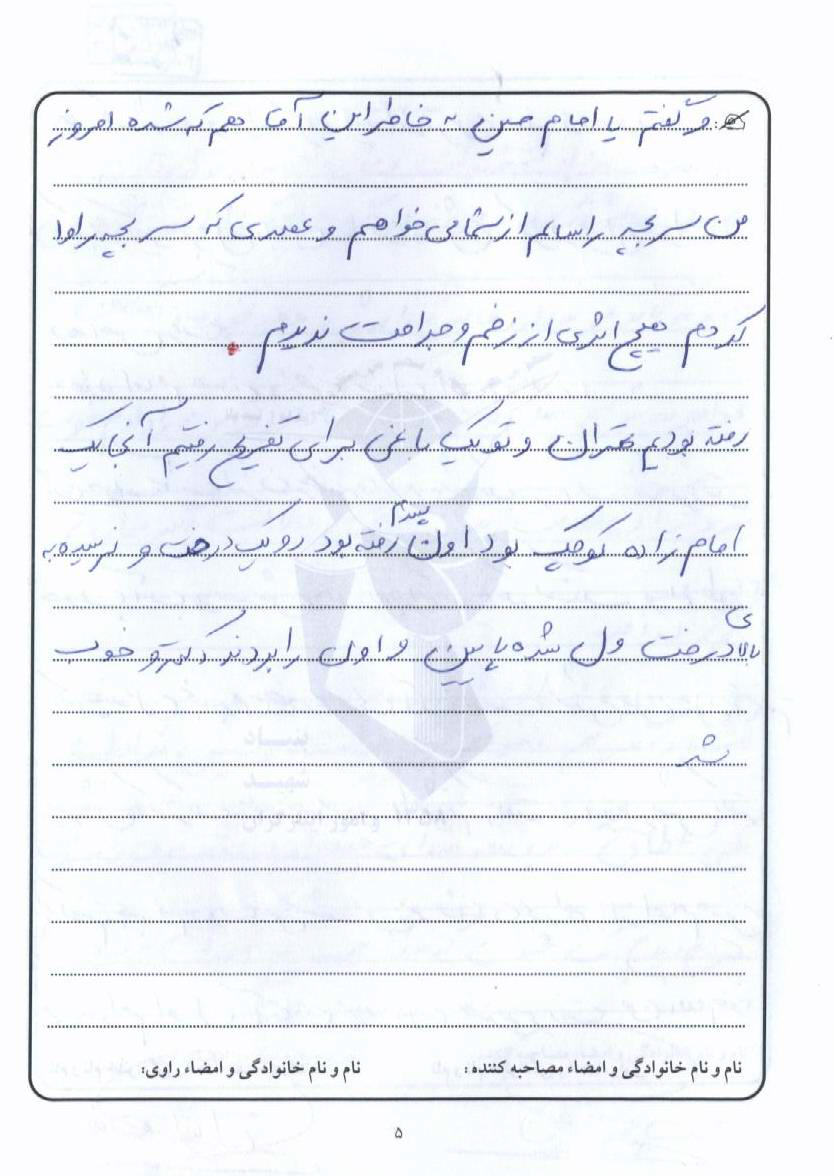 و گفتم یا امام حسین به خاطر این آقا هم که شده امروز
من سر بچه را سالم از شما می خواهم و عصری که سر بچه را وا
کردم هیچ اثری از زخم و جراحت ندیدم.
رفته بودیم تهران و تو یک باغی برای تفریح رفتیم آنجا یک
پسرم
امام زاده کوچک بود اون رفته بود رو یک درخت و نرسیده به
بالای درخت ول شده پایین و اون را بردند دکتر و خوب
شد
بنیاد
شهید
و امور ایثارگران
نام و نام خانوادگی و امضاء مصاحبه کننده:
نام و نام خانوادگی و امضاء راوی:
۵